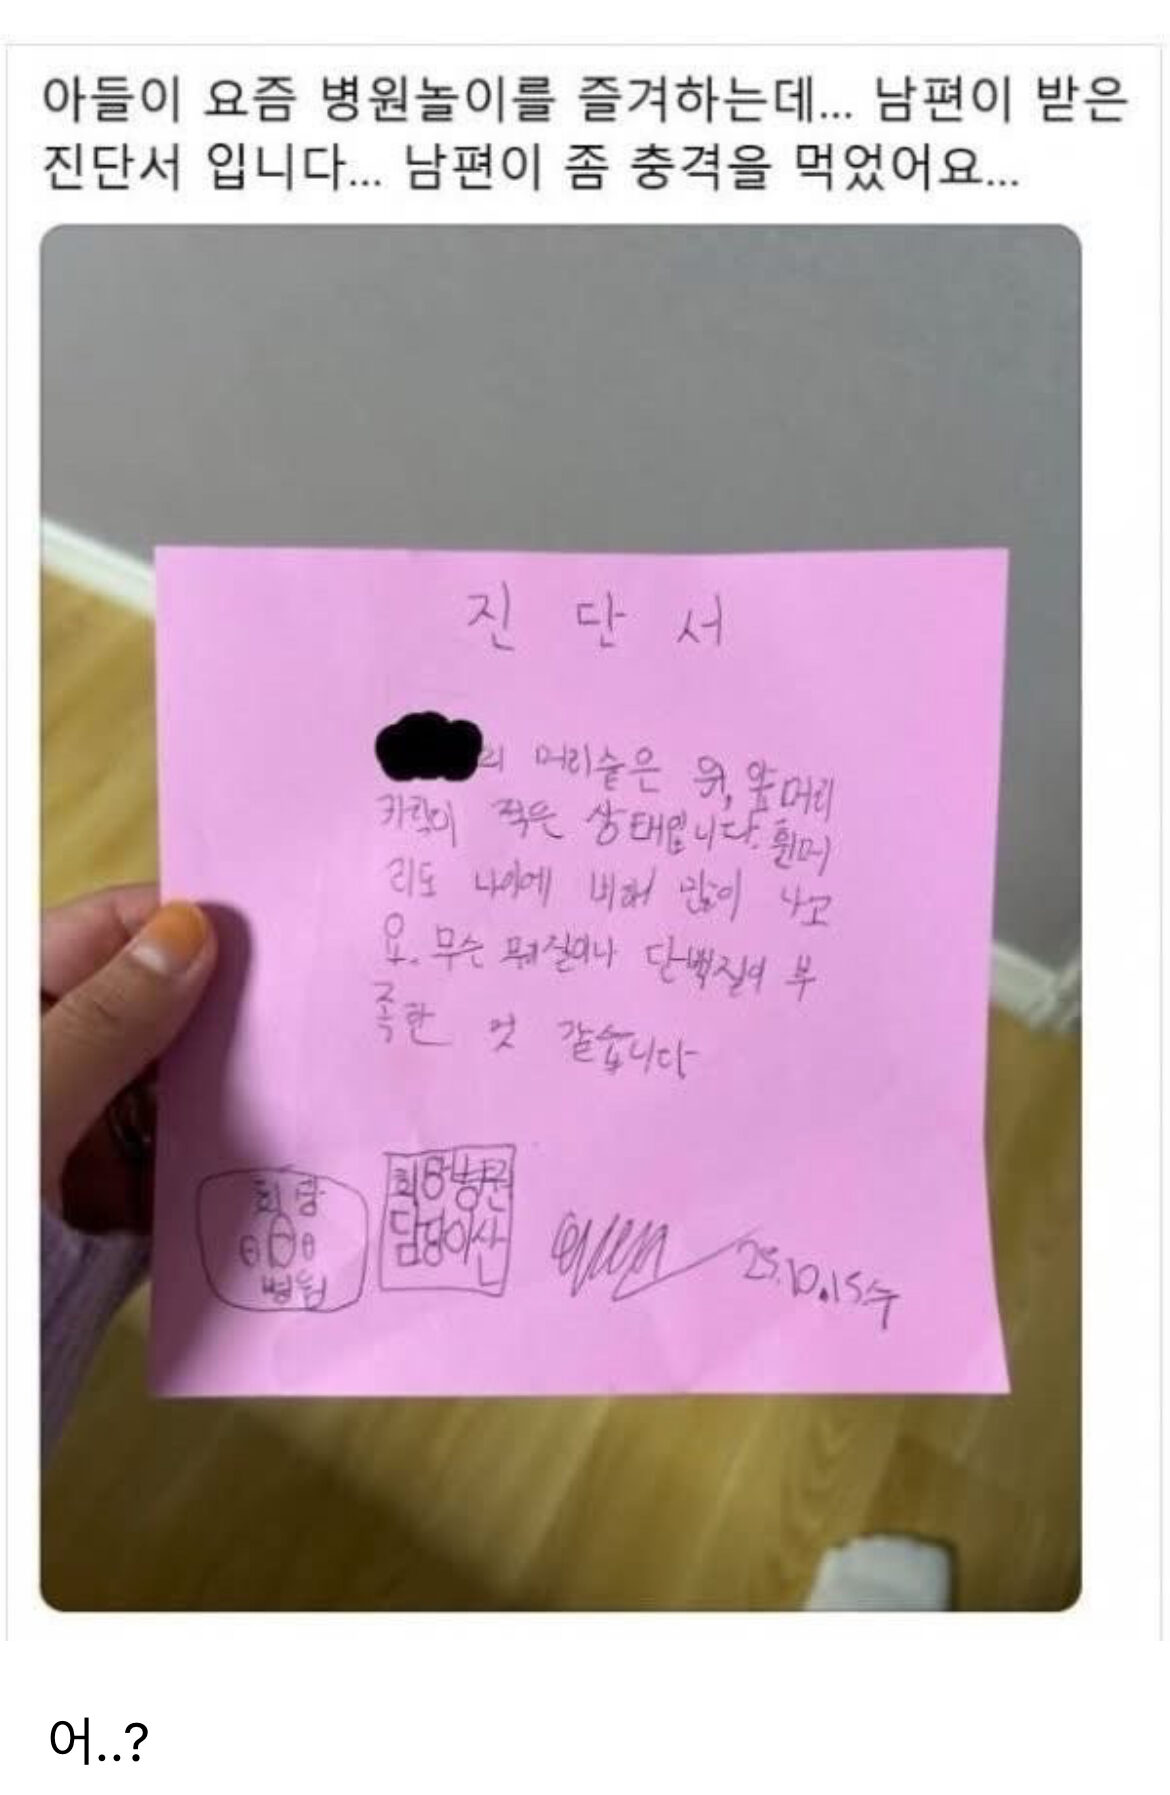 아들이 요즘 병원놀이를 즐겨하는데... 남편이 받은
진단서 입니다... 남편이 좀 충격을 먹었어요...
진 단 서
의 머리숱은 위, 앞머리
카락이 적은 상태입니다. 흰머
리도 나이에 비해 많이 나고
요. 무슨 뭐질이나 단백질이 부
족한 것 같습니다
희망
병원
담당이사
25.10.15수
어..?